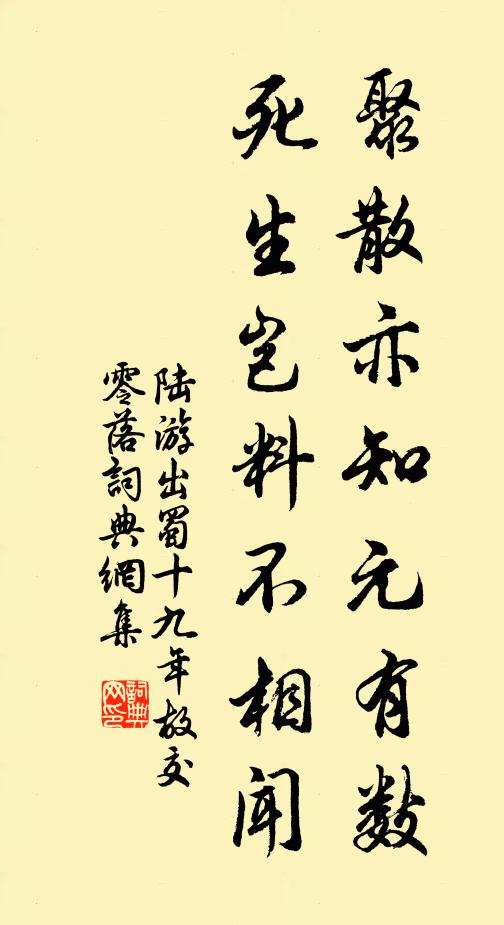 聚散亦知元有數
死生豈料不相聞
陸游出蜀十九年故交
零落詞典網集
詞典
网印